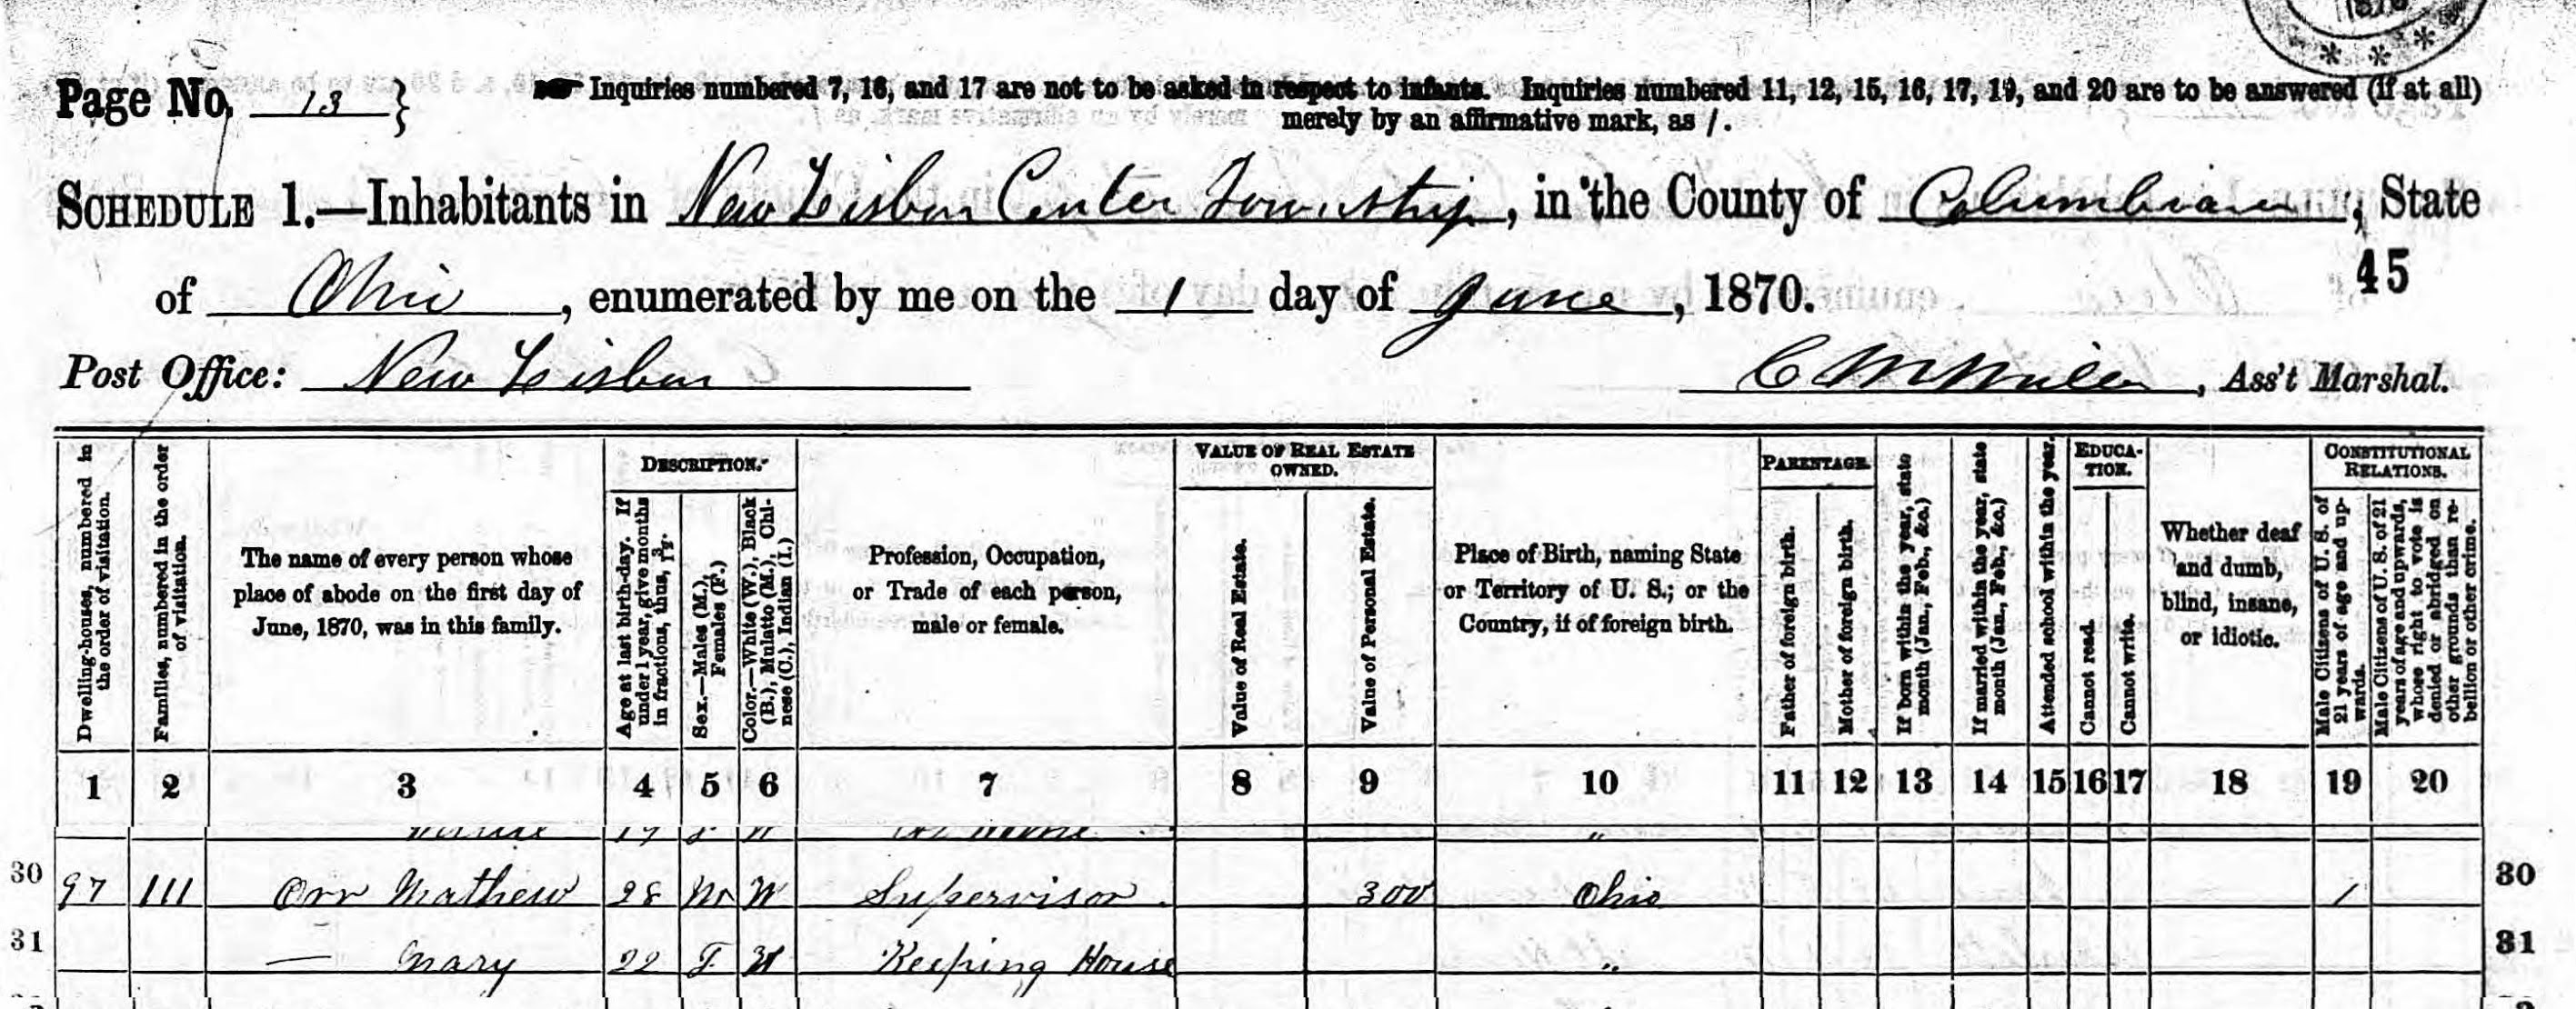 1870
* * *
Page No. 13 } Inquiries numbered 7, 16, and 17 are not to be asked in respect to infants. Inquiries numbered 11, 12, 15, 16, 17, 19, and 20 are to be answered (if at all)
merely by an affirmative mark, as /.
SCHEDULE 1.—Inhabitants in New Lisbon Center Township, in the County of Columbiana, State
of Ohio, enumerated by me on the 1 day of June, 1870.
45
Post Office: New Lisbon
C M, Ass't Marshal.
Dwelling-houses, numbered in the order of visitation.
Families, numbered in the order of visitation.
The name of every person whose
place of abode on the first day of
June, 1870, was in this family.
DESCRIPTION.
Age at last birth-day. If under 1 year, give months in fractions, thus, 3/12.
Sex.—Males (M.), Females (F.)
Color.—White (W.), Black (B.), Mulatto (M.), Chinese (C.), Indian (I.)
Profession, Occupation,
or Trade of each person,
male or female.
VALUE OF REAL ESTATE
OWNED.
Value of Real Estate.
Value of Personal Estate.
Place of Birth, naming State
or Territory of U. S.; or the
Country, if of foreign birth.
PARENTAGE.
Father of foreign birth.
Mother of foreign birth.
If born within the year, state month (Jan., Feb., &c.)
If married within the year, state month (Jan., Feb., &c.)
Attended school within the year.
EDUCA-
TION.
Cannot read.
Cannot write.
Whether deaf
and dumb,
blind, insane,
or idiotic.
CONSTITUTIONAL
RELATIONS.
Male Citizens of U. S. of 21 years of age and upwards.
Male Citizens of U. S. of 21 years of age and upwards, whose right to vote is denied or abridged on other grounds than rebellion or other crime.
1 2 3 4 5 6 7 8 9 10 11 12 13 14 15 16 17 18 19 20
30 97 111 Orr Mathew 28 M W Supervisor 300 Ohio / 30
31 — Mary 22 F W Keeping House " 31